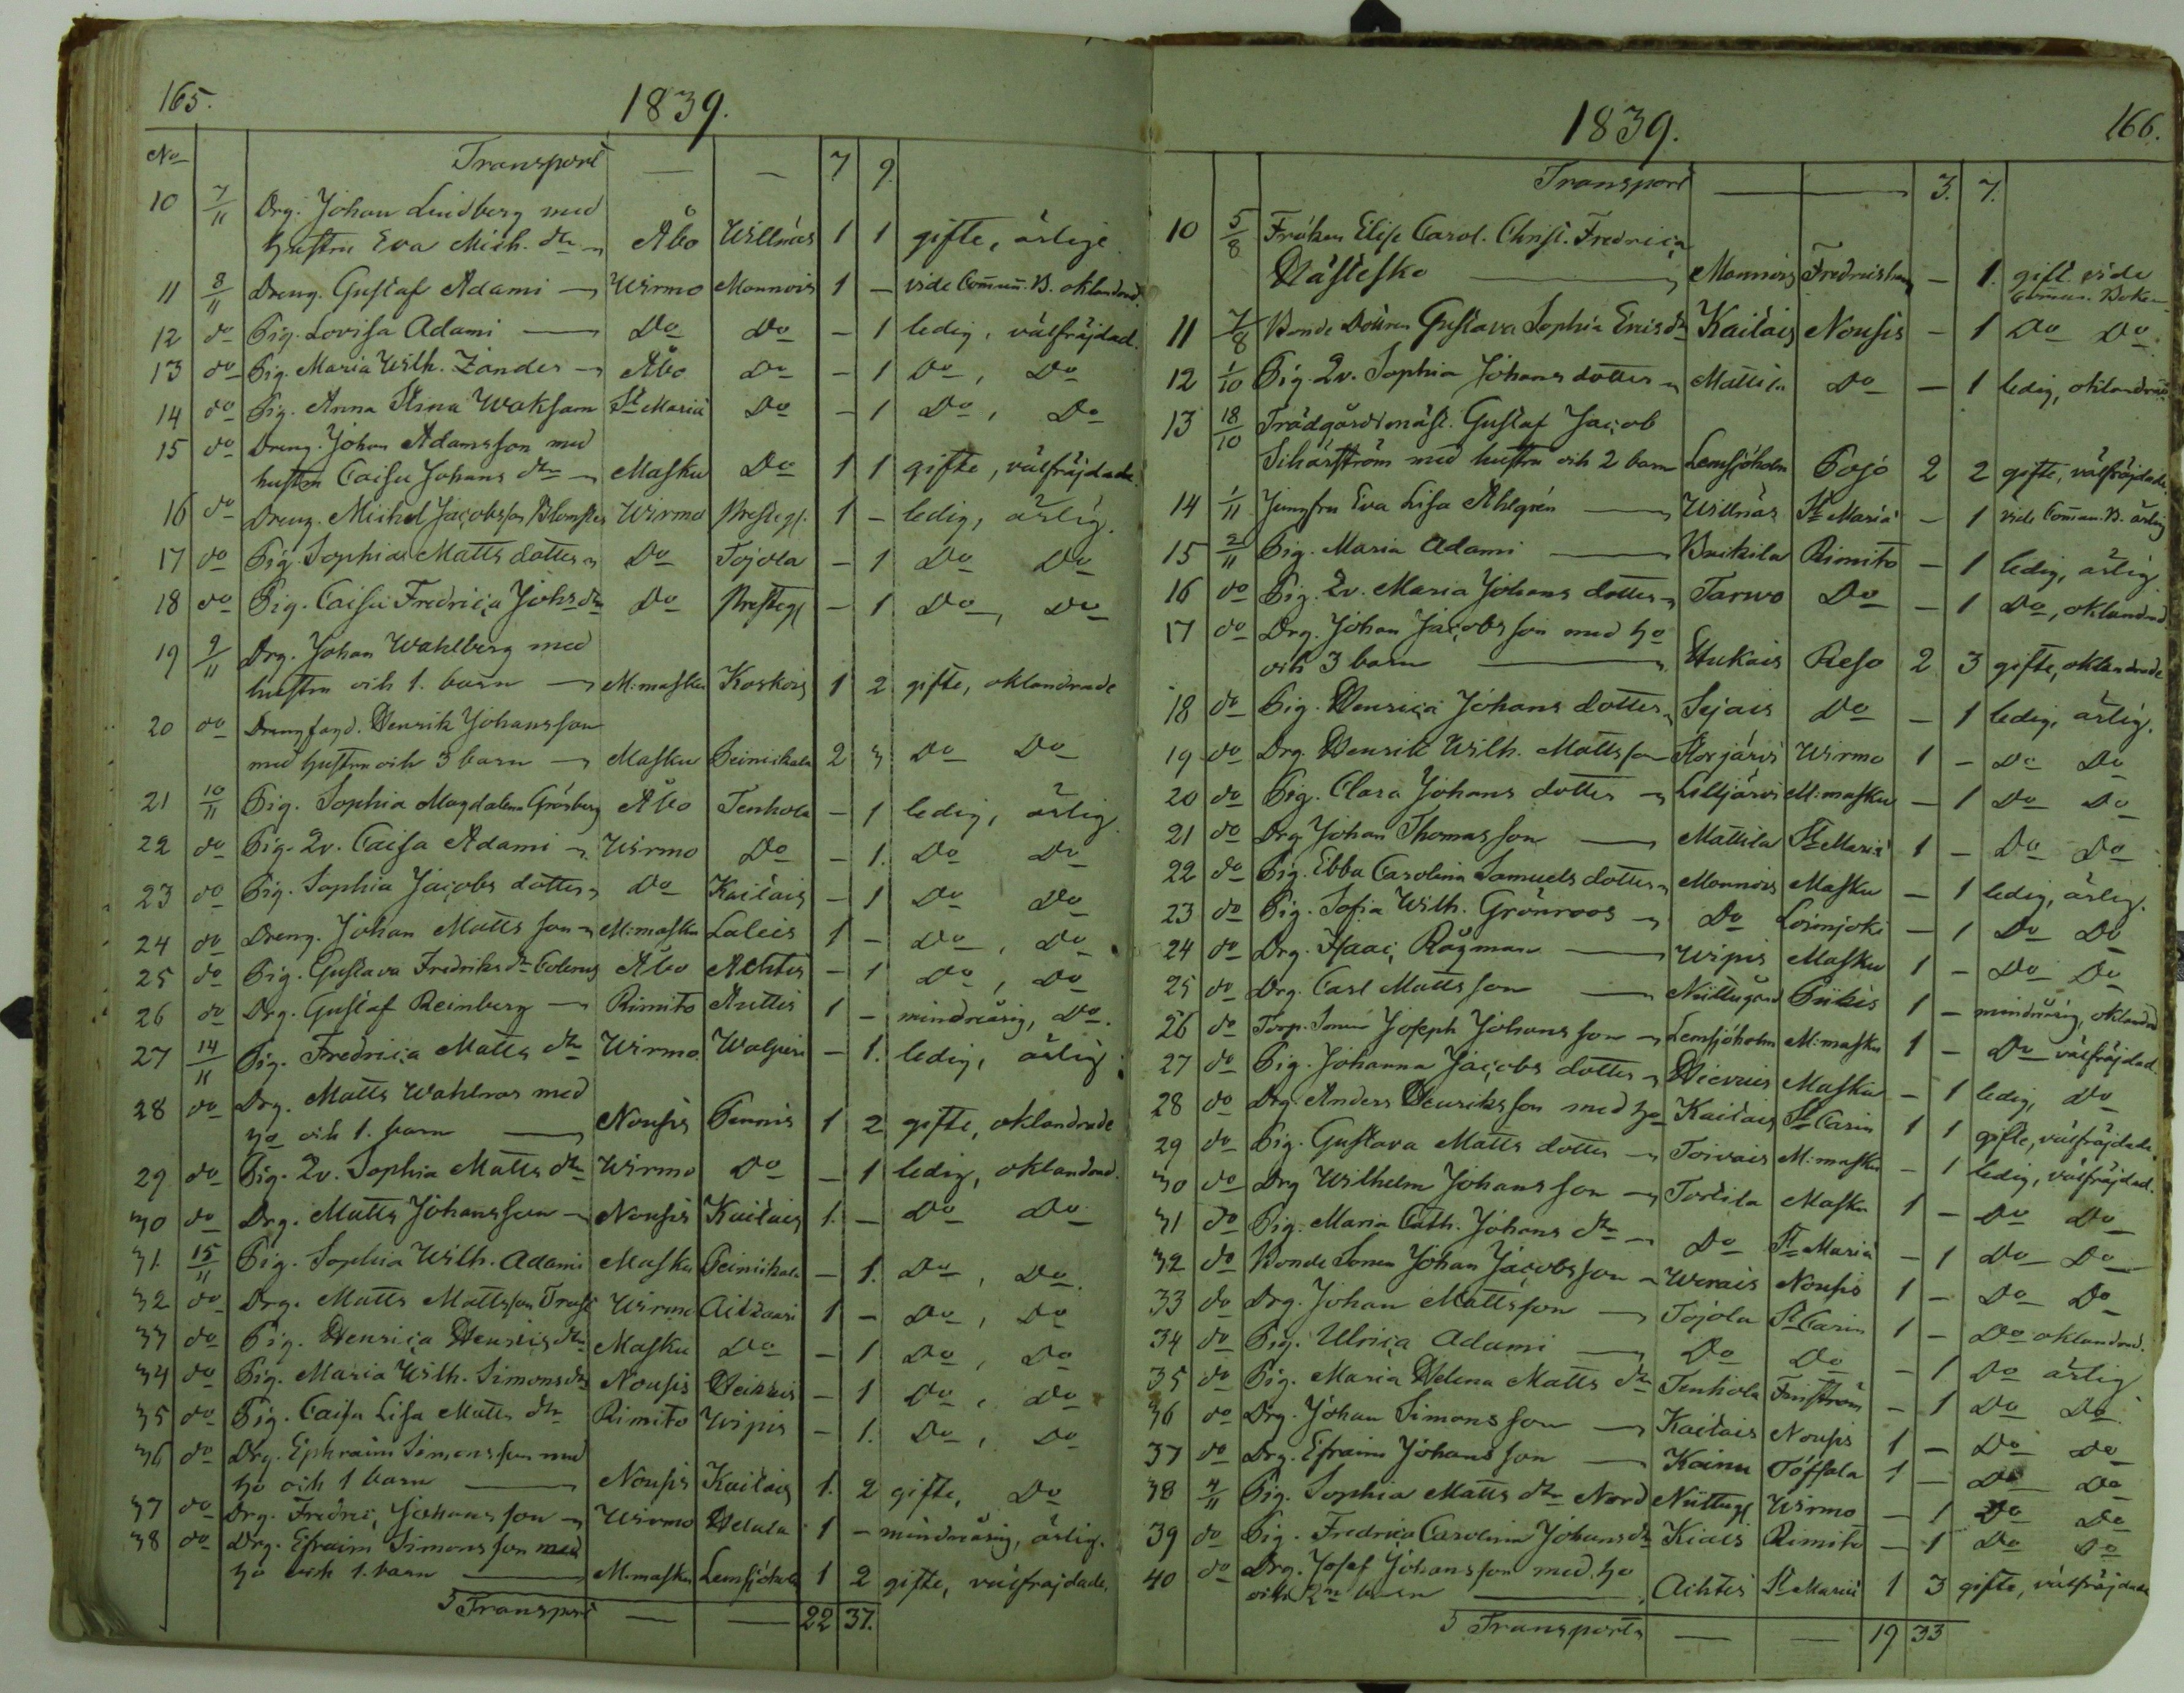 165.
1839.
No Transport — — 7 9
10 7/11 Drg. Johan Lindberg med
hustru Eva Mich. dr Åbo Willnäs 1 1 gifte, ärlige
11 8/11 Dreng. Gustaf Adami Wirmo Monnois 1 — vide Commun. B. oklandrad.
12 do Pig. Lovisa Adami Do Do — 1 ledig, välfräjdad.
13 do Pig. Maria Wilh. Zander Åbo Do — 1 Do, Do
14 do Pig. Anna Stina Waksam St Mariæ Do — 1 Do, Do
15 do Dreng. Johan Adamsson med
hustru Caisa Johans dr Masku Do 1 1 gifte, välfräjdade.
16 do Dreng. Michel Jacobsson Blomster Wirmo Presteg. 1 — ledig, ärlig.
17 do Pig. Sophia Matts dotter Do Tojola — 1 Do Do
18 do Pig. Caisa Fredrica Johs dr Do Presteg — 1 Do, Do
19 9/11 Drg. Johan Wahlberg med
hustru och 1. barn M:masku Koskois 1 2 gifte, oklandrade
20 do Henrik Johansson
med hustru och 3 barn Masku 2 3 Do Do
21 10/11 Pig. Sophia Magdalena Gråsberg Åbo Tenhola — 1 ledig, ärlig.
22 do Pig. 2v. Caisa Adami Wirmo Do — 1. Do Do
23 do Pig. Sophia Jacobs dotter Do Kaitais — 1 Do Do
24 do Dreng. Johan Matts son M:masku Laleis 1 — Do, Do
25 do Pig. Gustava Fredriks dr Åbo Achtis — 1 Do, Do
26 do Drg. Gustaf Reinberg Rimito Anttis 1 — mindreårig, Do.
27 14/11 Pig. Fredrica Matts dr Wirmo — 1. ledig, ärlig
28 do Drg. Matts Wahlroos med
ho och 1. barn Nousis Pennis 1 2 gifte, oklandrade
29 do Pig. 2v. Sophia Matts dr Wirmo Do — 1 ledig, oklandrad.
30 do Drg. Matts Johansson Nousis Kaitais 1. — Do Do
31. 15/11 Pig. Sophia Wilh. Adami Masku — 1. Do, Do.
32 do Drg. Matts Mattsson Trast Wirmo 1 — Do, Do
33 do Pig. Henrica Henrics dr Masku Do — 1 Do, Do
34 do Pig. Maria Wilh. Simons dr Nousis Heikkis — 1 Do, Do
35 do Pig. Caisa Lisa Matts dr Rimito Wipis — 1. Do, Do
36 do Drg. Ephraim Simonsson med
ho och 1 barn Nousis Kaitais 1. 2 gifte, Do
37 do Drg. Fredric Johansson Wirmo 1 — mindreårig, ärlig.
38 do Drg. Efraim Simonsson med
ho och 1. barn M:masku Lemsjöholm 1 2 gifte, välfräjdade.
Transport — — 22 37.
1839. 166.
Transport — — 3. 7.
10 5/8 Fröken Elise Carol. Christ. Fredrica
Hästesko Monnois Fredrikshamn — 1. gift. vide
Commun. Boken
11 7/8 Bonde Dottren Gustava Sophia Erics dr Kaitais Nousis — 1 Do Do
12 1/10 Pig. 2v. Sophia Johans dotter Mattila Do — 1 ledig, oklandrad
13 18/10 Trädgårdsmäst. Gustaf Jacob
Sihärström med hustru och 2 barn Lemsjöholm Pojo 2 2 gifte, välfräjdade.
14 1/11 Jungfru Eva Lisa Ahlgrén Willnäs St Mariæ — 1 vide Commun. B. ärlig
15 2/11 Pig. Maria Adami Rimito — 1 ledig, ärlig
16 do Pig. 2v. Maria Johans dotter Tarwo Do — 1 Do, oklandrad
17 do Drg. Johan Jacobsson med ho
och 3 barn Reso 2 3 gifte, oklandrade
18 do Pig. Henrica Johans dotter Sejais Do — 1 ledig, ärlig.
19 do Drg. Henrik Wilh. Mattsson Storjärvi Wirmo 1 — Do Do
20 do Pig. Clara Johans dotter Lilljärvi M:masku — 1 Do Do
21 do Drg Johan Thomasson Mattila St Mariæ 1 — Do Do
22 do Pig. Ebba Carolina Samuels dotter Monnois Masku — 1 ledig, ärlig.
23 do Pig. Sofia Wilh. Grönroos Do Loimjoki — 1 Do Do
24 do Drg. Isaac Rågman Wipis Masku 1 — Do Do
25 do Drg. Carl Matts son Niittugård Pükis 1 — mindreårig, oklandrad
26 do Torp. Sonen Joseph Johansson Lemsjöholm M:masku 1 — Do välfräjdad.
27 do Pig. Johanna Jacobs dotter Masku — 1 ledig, Do
28 do Drg. Anders Henriksson med ho Kaitais St Carin 1 1 gifte, välfräjdade.
29 do Pig. Gustava Matts dotter Toivais M:masku — 1 ledig, välfräjdad.
30 do Drg Wilhelm Johansson Tortila Masku 1 — Do Do
31 do Pig. Maria Cath. Johans dr Do St Mariæ — 1 Do Do
32 do Bonde Sonen Johan Jacobsson Werais Nousis 1 — Do Do
33 do Drg. Johan Mattsson Tojola St Carin 1 — Do oklandrad.
34 do Pig. Ulrica Adami Do Do — 1 Do ärlig
35 do Pig. Maria Helena Matts dr Tenhola Finström — 1 Do Do
36 do Drg. Johan Simonsson Kaitais Nousis 1 — Do Do
37 do Drg. Efraim Johansson Kainu Töfsala 1 — Do Do
38 4/11 Pig. Sophia Matts dr Nord Niittug Wirmo — 1 Do Do
39 do Pig. Fredrica Carolina Johans dr Kiais Rimito — 1 Do Do
40 do Drg. Josef Johansson med ho
och 2ne barn Achtis St Mariæ 1 3 gifte, välfräjdade
Transporte — — 19 33